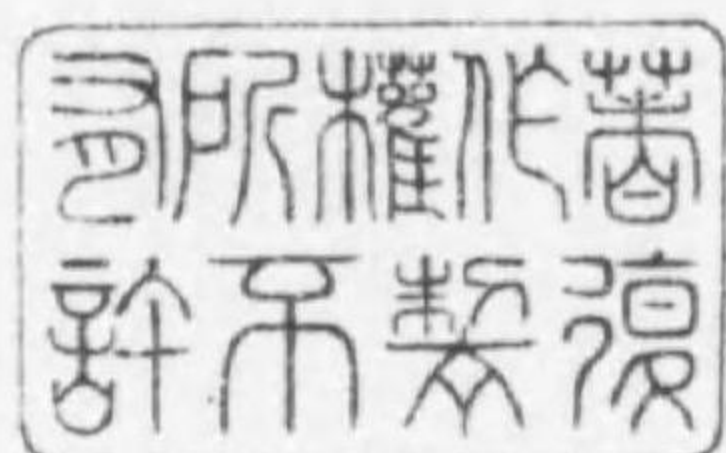 著作權所有
復製不許